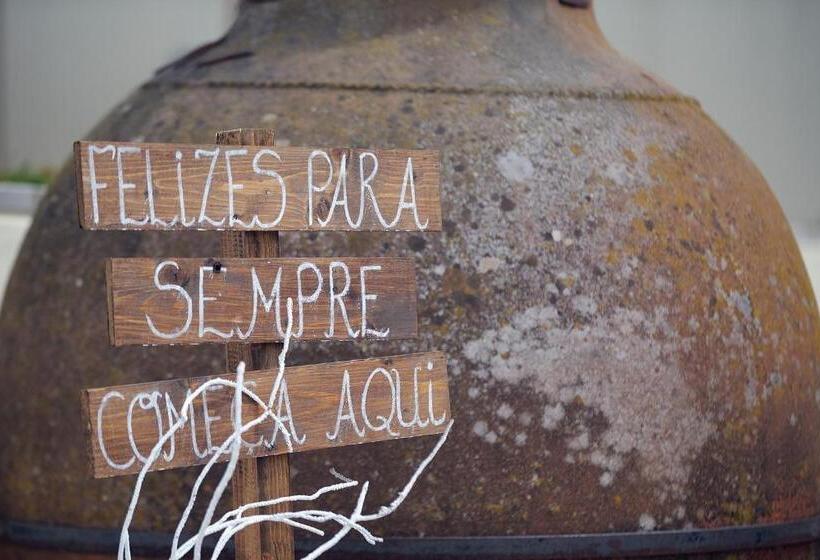 FELiZES PARA
SEMPRE
COMEÇA AQUi